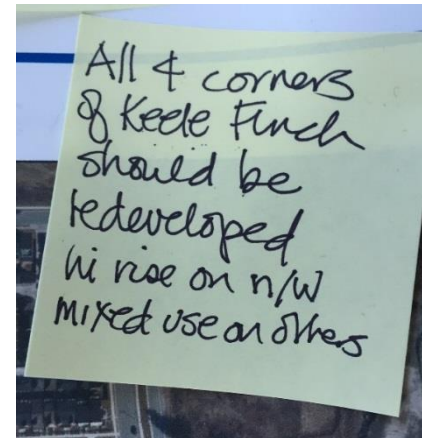 All 4 corners
of Keele Finch
should be
redeveloped
hi rise on n/w
mixed use on others